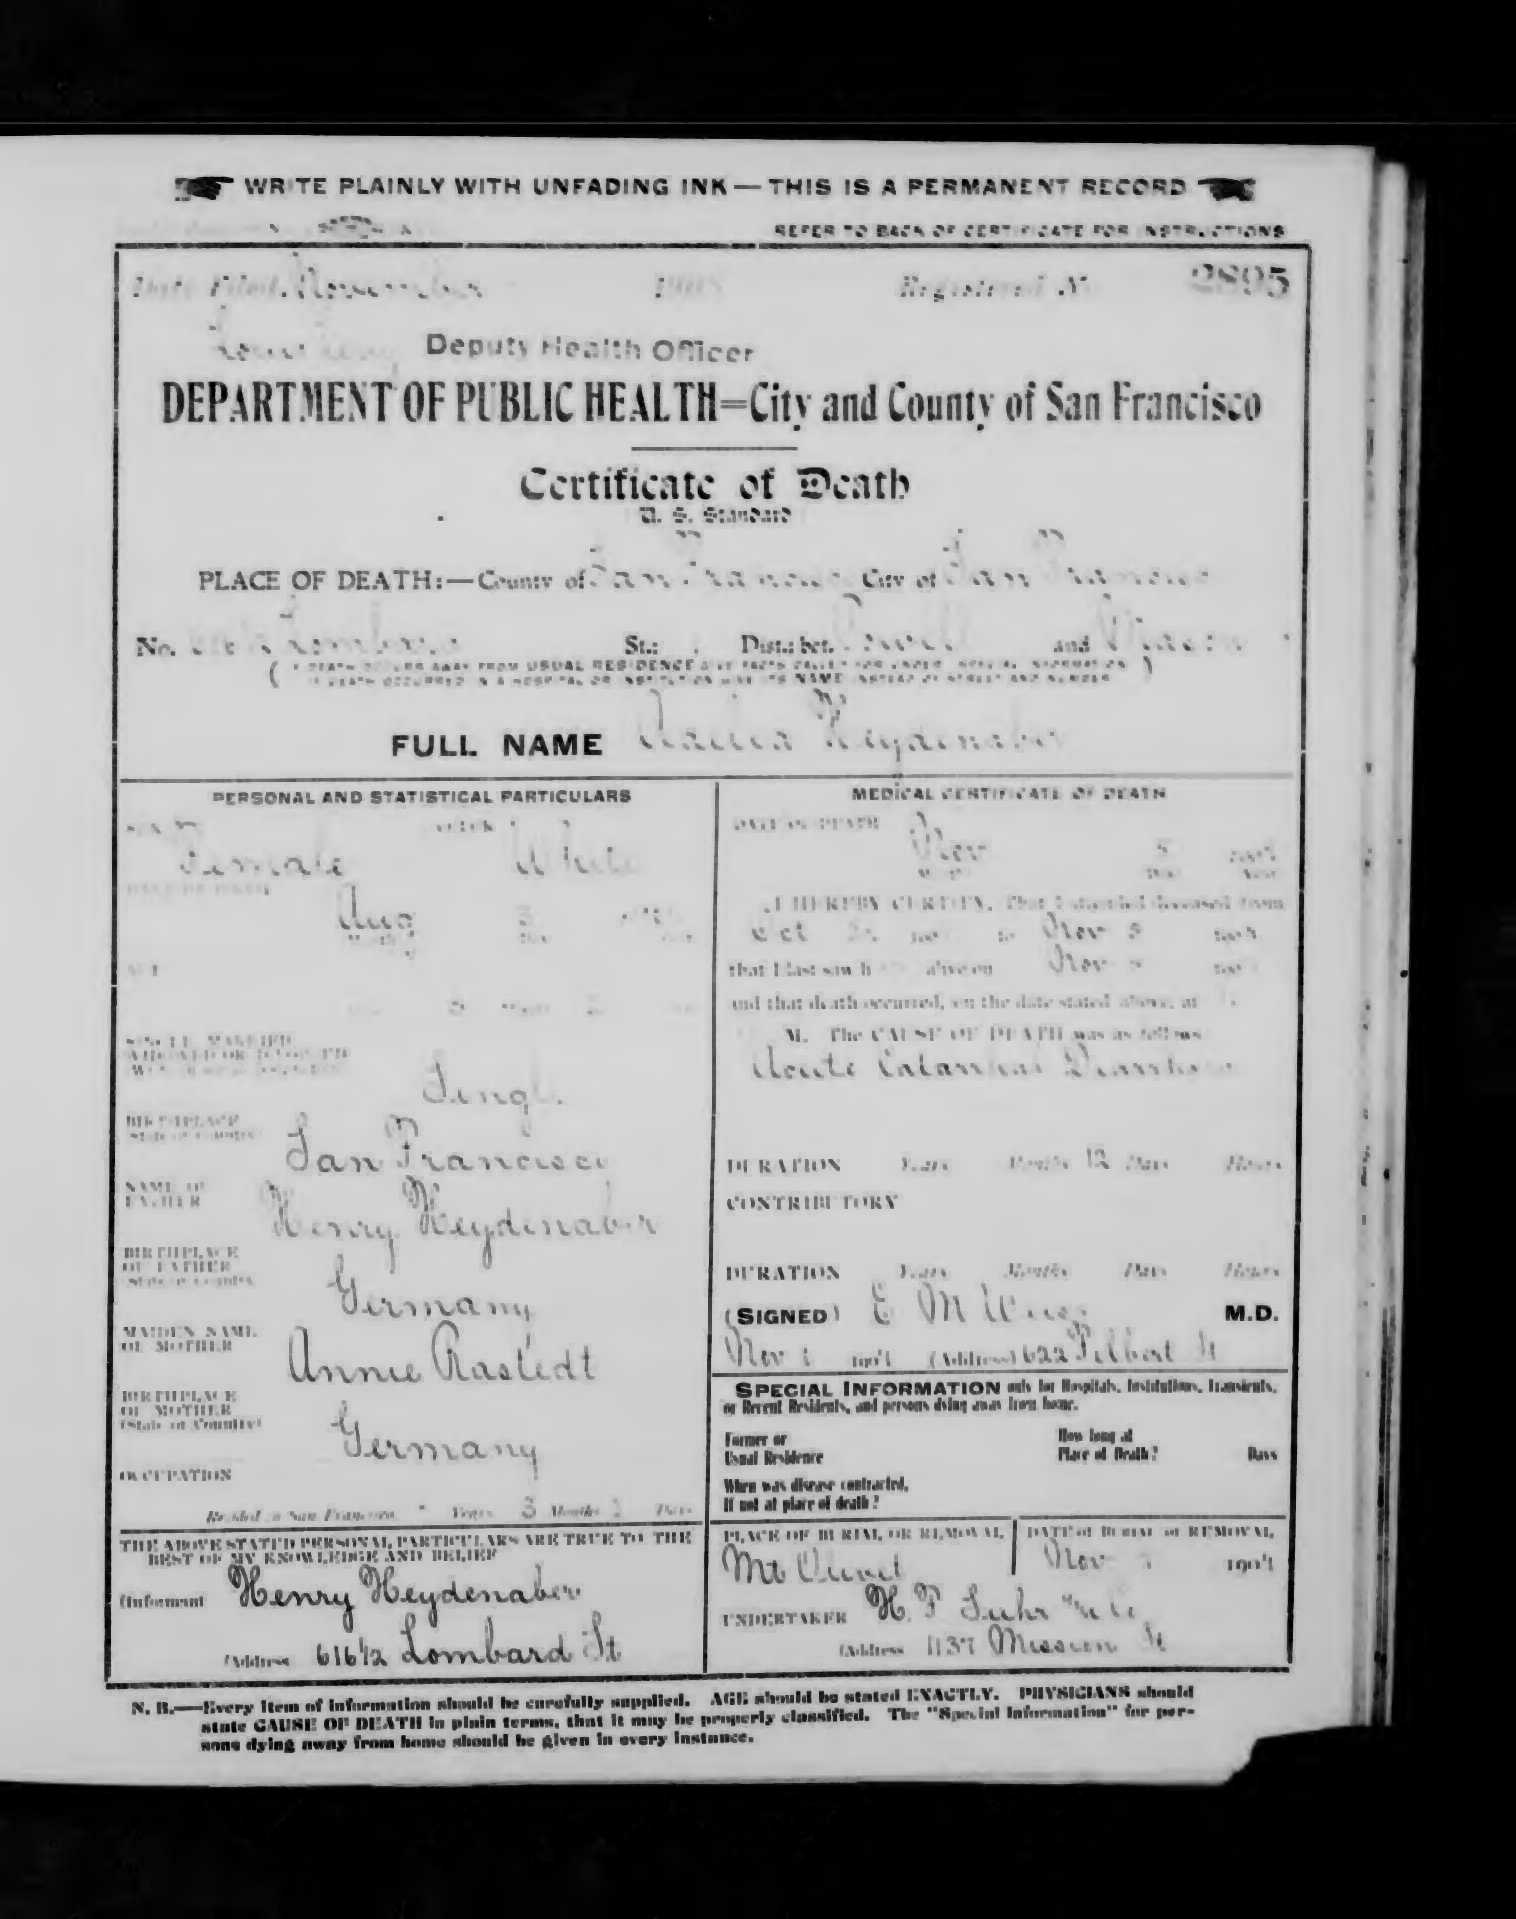 WRITE PLAINLY WITH UNFADING INK — THIS IS A PERMANENT RECORD
REFER TO BACK OF CERTIFICATE FOR INSTRUCTIONS
Date Filed, November Registered No. 2895
Deputy Health Officer
DEPARTMENT OF PUBLIC HEALTH=City and County of San Francisco
Certificate of Death
U. S. Standard
PLACE OF DEATH:—County of San Francisco City of San Francisco
No. Lombard St.; Dist.; bet. Powell and Mason
( IF DEATH OCCURS AWAY FROM USUAL RESIDENCE GIVE FACTS CALLED FOR UNDER "SPECIAL INFORMATION" )
( IF DEATH OCCURRED IN A HOSPITAL OR INSTITUTION GIVE ITS NAME INSTEAD OF STREET AND NUMBER. )
FULL NAME Heydenaber
PERSONAL AND STATISTICAL PARTICULARS
SEX COLOR
Female White
DATE OF BIRTH
Aug 3
Month Day Year
AGE
3 Months
SINGLE, MARRIED,
WIDOWED OR DIVORCED
Single
BIRTHPLACE
State or Country
San Francisco
NAME OF
FATHER
Henry Heydenaber
BIRTHPLACE
OF FATHER
(State or Country)
Germany
MAIDEN NAME
OF MOTHER
Annie Rastedt
BIRTHPLACE
OF MOTHER
(State or Country)
Germany
OCCUPATION
Resided in San Francisco - Years 3 Months 2 Days
THE ABOVE STATED PERSONAL PARTICULARS ARE TRUE TO THE
BEST OF MY KNOWLEDGE AND BELIEF
(Informant Henry Heydenaber
(Address 616½ Lombard St
MEDICAL CERTIFICATE OF DEATH
DATE OF DEATH
Nov 5 1904
Month Day Year
I HEREBY CERTIFY, That I attended deceased from
Oct to Nov 5 1904
that I last saw h alive on Nov 5 190
and that death occurred, on the date stated above, at
M. The CAUSE OF DEATH was as follows
Acute Catarrhal Diarrhoea
DURATION Years Months 12 Days Hours
CONTRIBUTORY
DURATION Years Months Days Hours
(SIGNED) E M M.D.
Nov 1904 (Address) 622 Filbert St
SPECIAL INFORMATION only for Hospitals, Institutions, Transients,
or Recent Residents, and persons dying away from home.
Former or
Usual Residence
How long at
Place of Death? Days
When was disease contracted,
If not at place of death?
PLACE OF BURIAL OR REMOVAL
Mt Olivet
DATE of BURIAL or REMOVAL
Nov 1904
UNDERTAKER H. F. Suhr & Co
(Address 1137 Mission St
N. B.—Every item of information should be carefully supplied. AGE should be stated EXACTLY. PHYSICIANS should
state CAUSE OF DEATH in plain terms, that it may be properly classified. The "Special Information" for per-
sons dying away from home should be given in every instance.